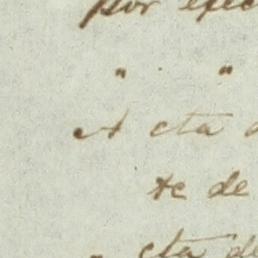 por efec
" . "
Acta
te de
cta de